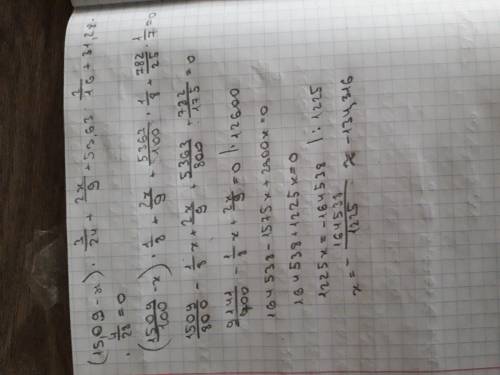 (15,09 - x) · 3/24 + 2x/9 + 53,63 · 2/16 + 31,28 ·
· 4/28 = 0
(1509/100 - x) · 1/8 + 2x/9 + 5363/100 · 1/8 + 782/25 · 1/7 = 0
1509/800 - 1/8 x + 2x/9 + 5363/800 + 782/175 = 0
9141/700 - 1/8 x + 2x/9 = 0 |· 12600
164538 - 1575x + 2800x = 0
164538 + 1225x = 0
1225x = -164538 |: 1225
x = - 164538/1225 x - 134,316